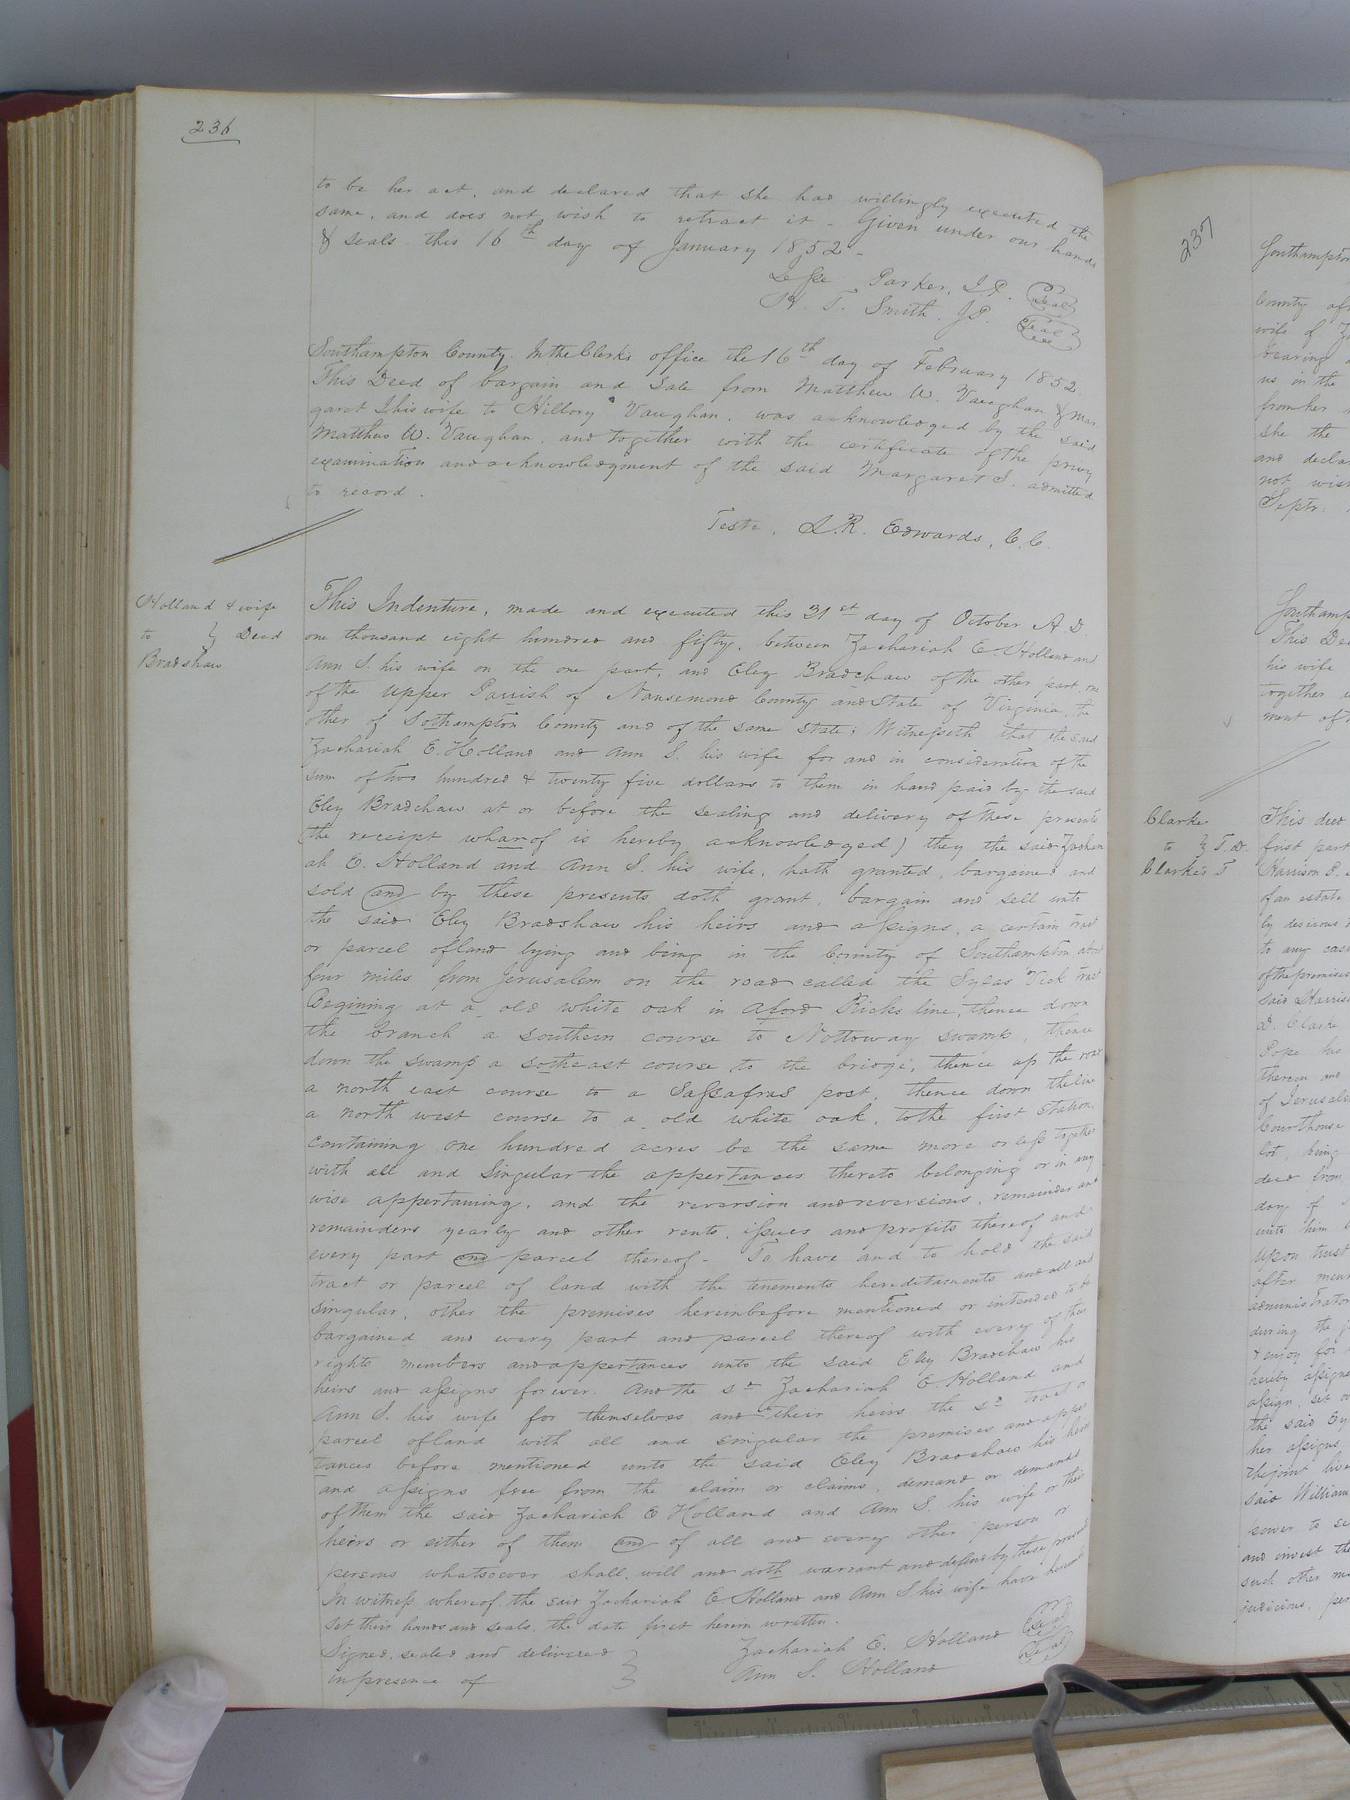 236
to be her act, and declared that she had willingly executed the
same, and does not wish to retract it - Given under our hands
& seals this 16th day of January 1852 -
Jesse Parker, J.P. Seal
W. T. Smith. J.P. Seal
Southampton County. In the Clerk's office the 16th day of February 1852.
This Deed of bargain and Sale from Matthew W. Vaughan & Mar
garet S his wife to Hillory Vaughan, was acknowledged by the said
Matthew W. Vaughan, and together with the certificate of the privy
examination and acknowledgment of the said Margaret S. admitted
to record.
Teste, L.R. Edwards, C.C.
Holland & wife
to } Deed
Bradshaw
This Indenture, made and executed this 31st day of October A D
one thousand eight hundred and fifty, between Zachariah E. Holland and
Ann S. his wife on the one part, and Eley Bradshaw of the other part, one
of the Upper Parrish of Nansemond County and State of Virginia, the
other of Sothampton County and of the same State; Witnesseth that the said
Zachariah E. Holland and Ann S. his wife for and in consideration of the
sum of two hundred & twenty five dollars to them in hand paid by the said
Eley Bradshaw at or before the sealing and delivery of these presents
(the receipt wharof is hereby acknowledged) they the said Zachari
ah E. Holland and Ann S. his wife, hath granted, bargained and
sold and by these presents doth grant, bargain and sell unto
the said Eley Bradshaw his heirs and assigns, a certain tract
or parcel of land lying and being in the County of Southampton about
four miles from Jerusalem on the road called the Sykes Tick tract
Begining at a old white oak in Aford Ricks line, thence down
the branch a southern course to Nottoway swamp, thence
down the swamp a sotheast course to the bridge, thence up the road
a north east course to a Sassafras post, thence down the line
a north west course to a old white oak, to the first station,
containing one hundred acres be the same more or less together
with all and Singular the appertances thereto belonging or in any
wise appertaining, and the reversion and reversions, remainder and
remainders yearly and other rents, issues and profits thereof and
every part and parcel thereof - To have and to hold the said
tract or parcel of land with the tenements hereditaments and all and
singular, other the premises hereinbefore mentioned or intended to be
bargained and every part and parcel thereof with every of their
rights members and appertances unto the said Eley Bradshaw his
heirs and assigns forever. And the sd Zachariah E Holland and
Ann S. his wife for themselves and their heirs the sd tract or
parcel of land with all and singular the premises and apper
tances before mentioned unto the said Eley Bradshaw his heirs
and assigns free from the claim or claims, demand or demands
of them the said Zachariah E Holland and Ann S. his wife or their
heirs or either of them and of all and every other person or
persons whatsoever shall, will and doth warrant and defend by these presents
In witness whereof, the said Zachariah E Holland and Ann S his wife have hereunto
set their hands and seals, the date first herein written.
Signed, sealed and delivered } Zachariah E. Holland Seal
in presence of Ann S. Holland Seal
237
Southampton
County
wife of
bearing
us in the
from her
she the
and decla
not wish
Septr.
Southamp
This Dee
his wife
together
ment of
Clarke
to } T.D.
Clarke's T
This deed
first part
Harrison P.
of an estate
by
to any
of the premises
said Harris
D. Clarke
Pope his
thereon and
of Jerusale
Courthouse
lot, being
deed from
day of
unto him
upon trust
after
administrator
during the
& enjoy for
hereby assign
assign, set
the said
her assigns
the joint lives
said William
power to
and invest the
such other
judicious, per